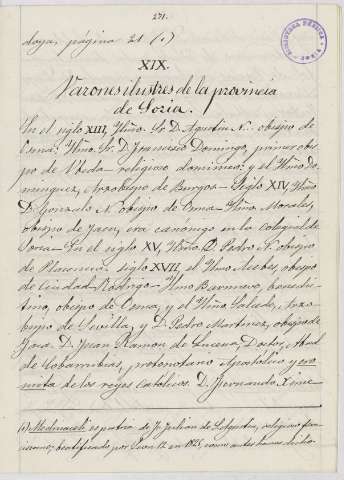 271.
doya, página 21 (1)
BIBLIOTECA PÚBLICA SORIA
XIX.
Varones ilustres de la provincia
de Soria.
En el siglo XIII, Yllmo. Sr. D. Agustin N. obispo de
Osma, Yllmo. Sr. D. Francisco Domingo, primer obis
po de Ubeda - religioso dominico: y el Yllmo Do
minguez, Arzobispo de Burgos - Siglo XIV, Yllmo
D. Gonzalo N. obispo de Osma - Yllmo Morales,
obispo de Jaen, era canonigo en la Colegial de
Soria - En el siglo XV, Yllmo. D. Pedro N. obispo
de Plasencia, siglo XVII, el Yllmo obispo
de Ciudad-Rodrigo - Yllmo benedic
tino, obispo de Osma, y el Yllmo Arzo
bispo de Sevilla, y D. Pedro Martinez, obispo de
Jaca. D. Juan Ramon de Lucena, Doctor, Abad
de Cobarrubias, protonotario Apostólico y
de los reyes Católicos. D. Fernando Xime
(1) Medinaceli es patria de Fr. Julian de religioso fran
ciscano; beatificado por Leon 12 en 1825, como antes hemos dicho.